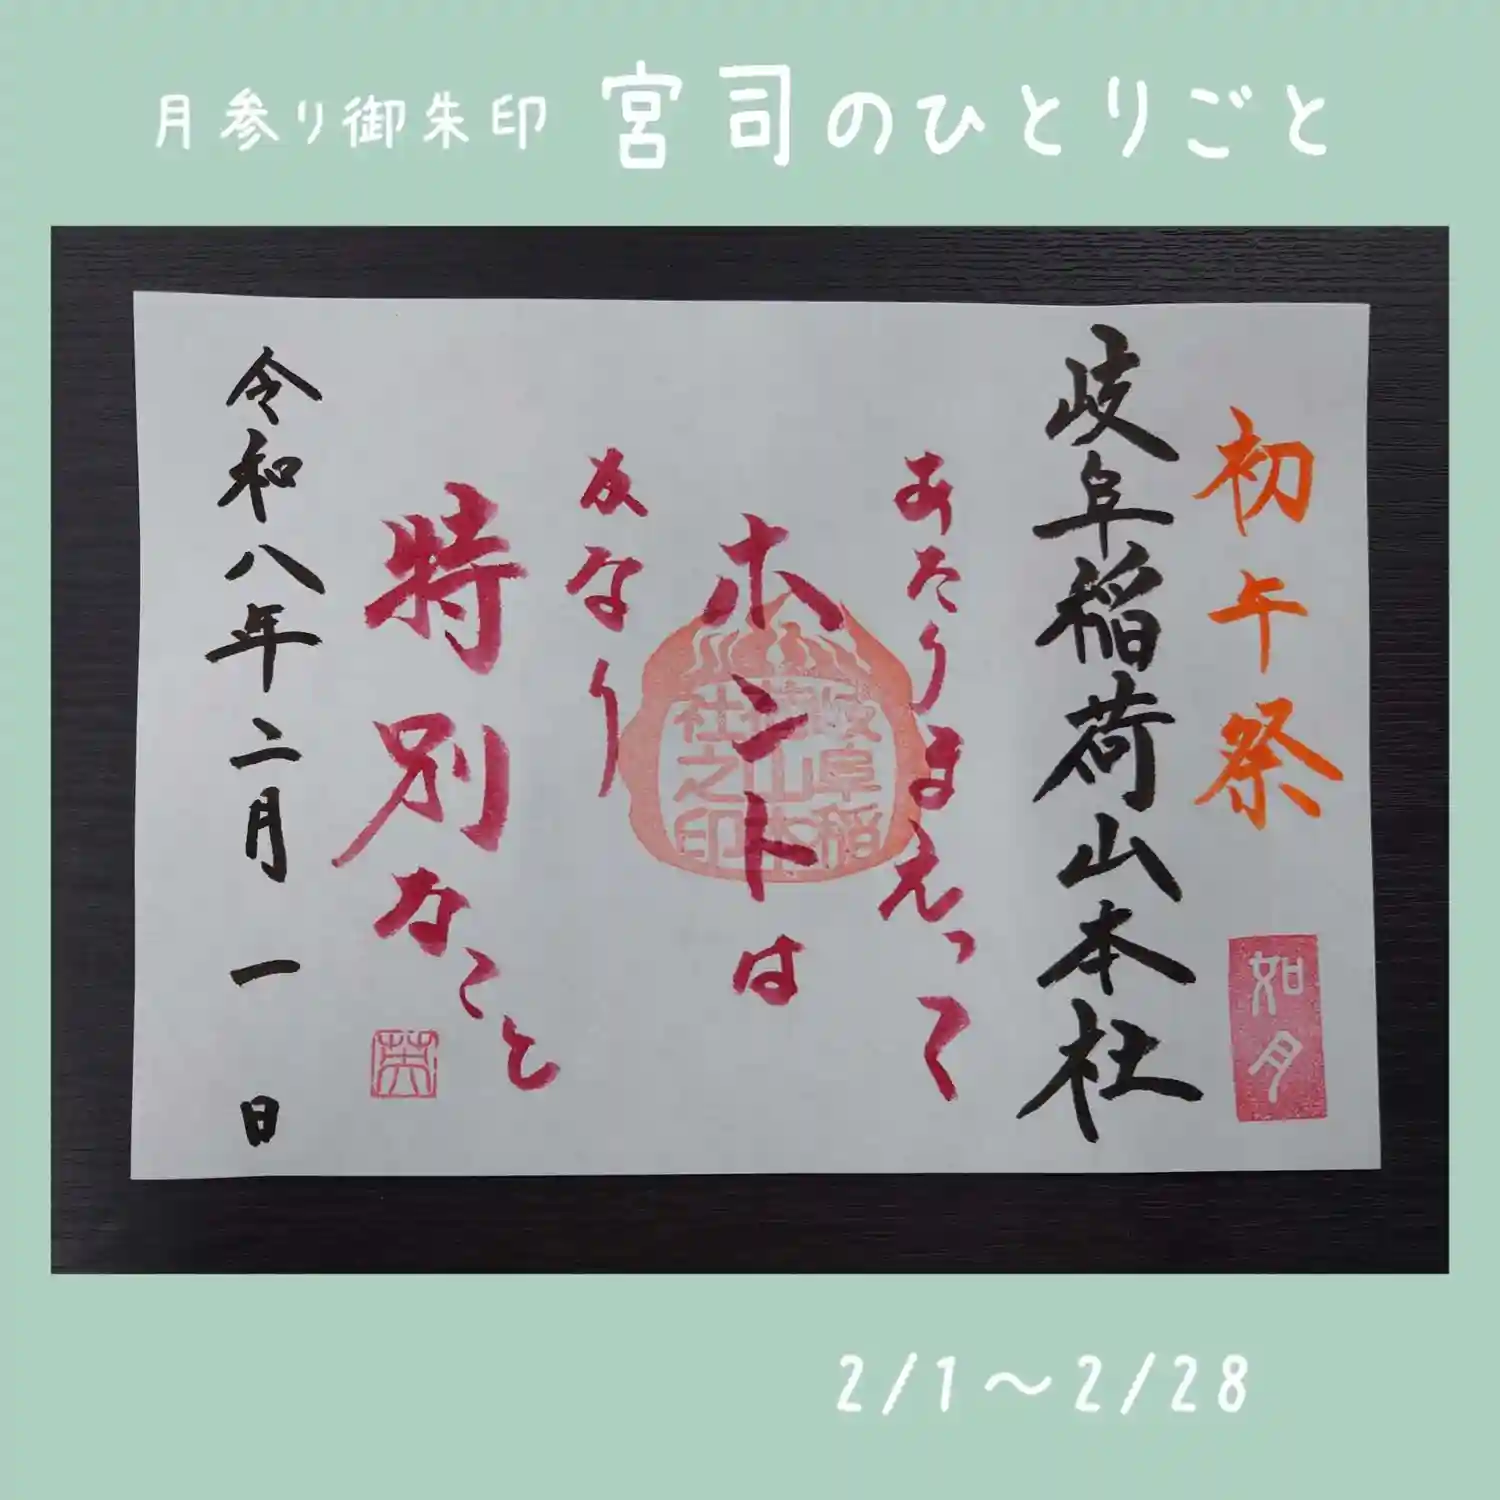 月参り御朱印 宮司のひとりごと
初午祭
如月
岐阜稲荷山本社
あたりまえって
ホントは
かなり
特別なこと
岐阜稲
荷山本
社之印
令和八年二月一日
2/1〜2/28